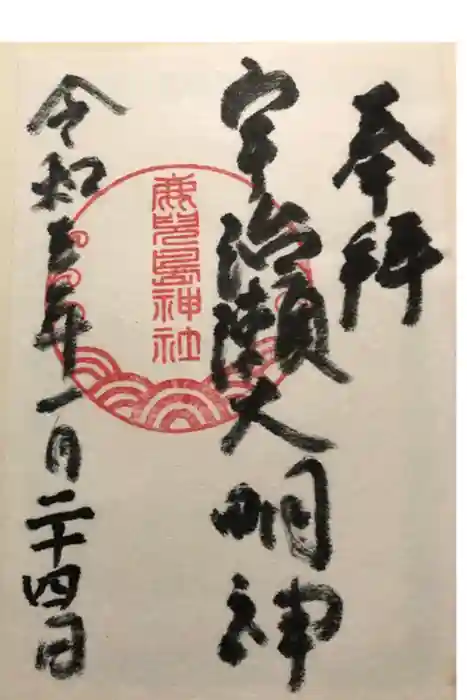 奉拝
宇治瀬大明神
鹿児島神社
令和三年一月二十四日